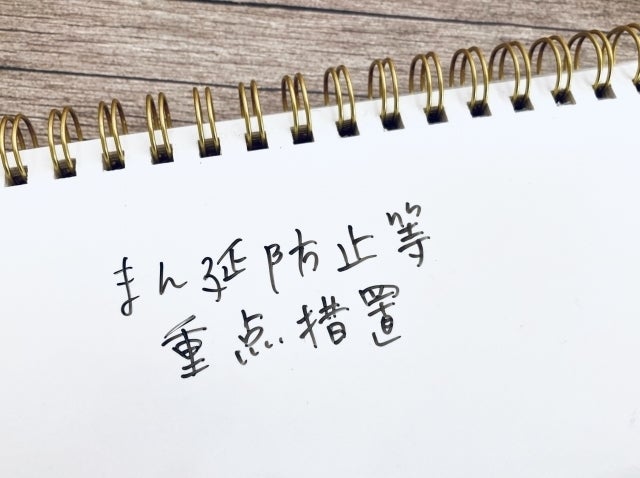 まん延防止等
重点措置